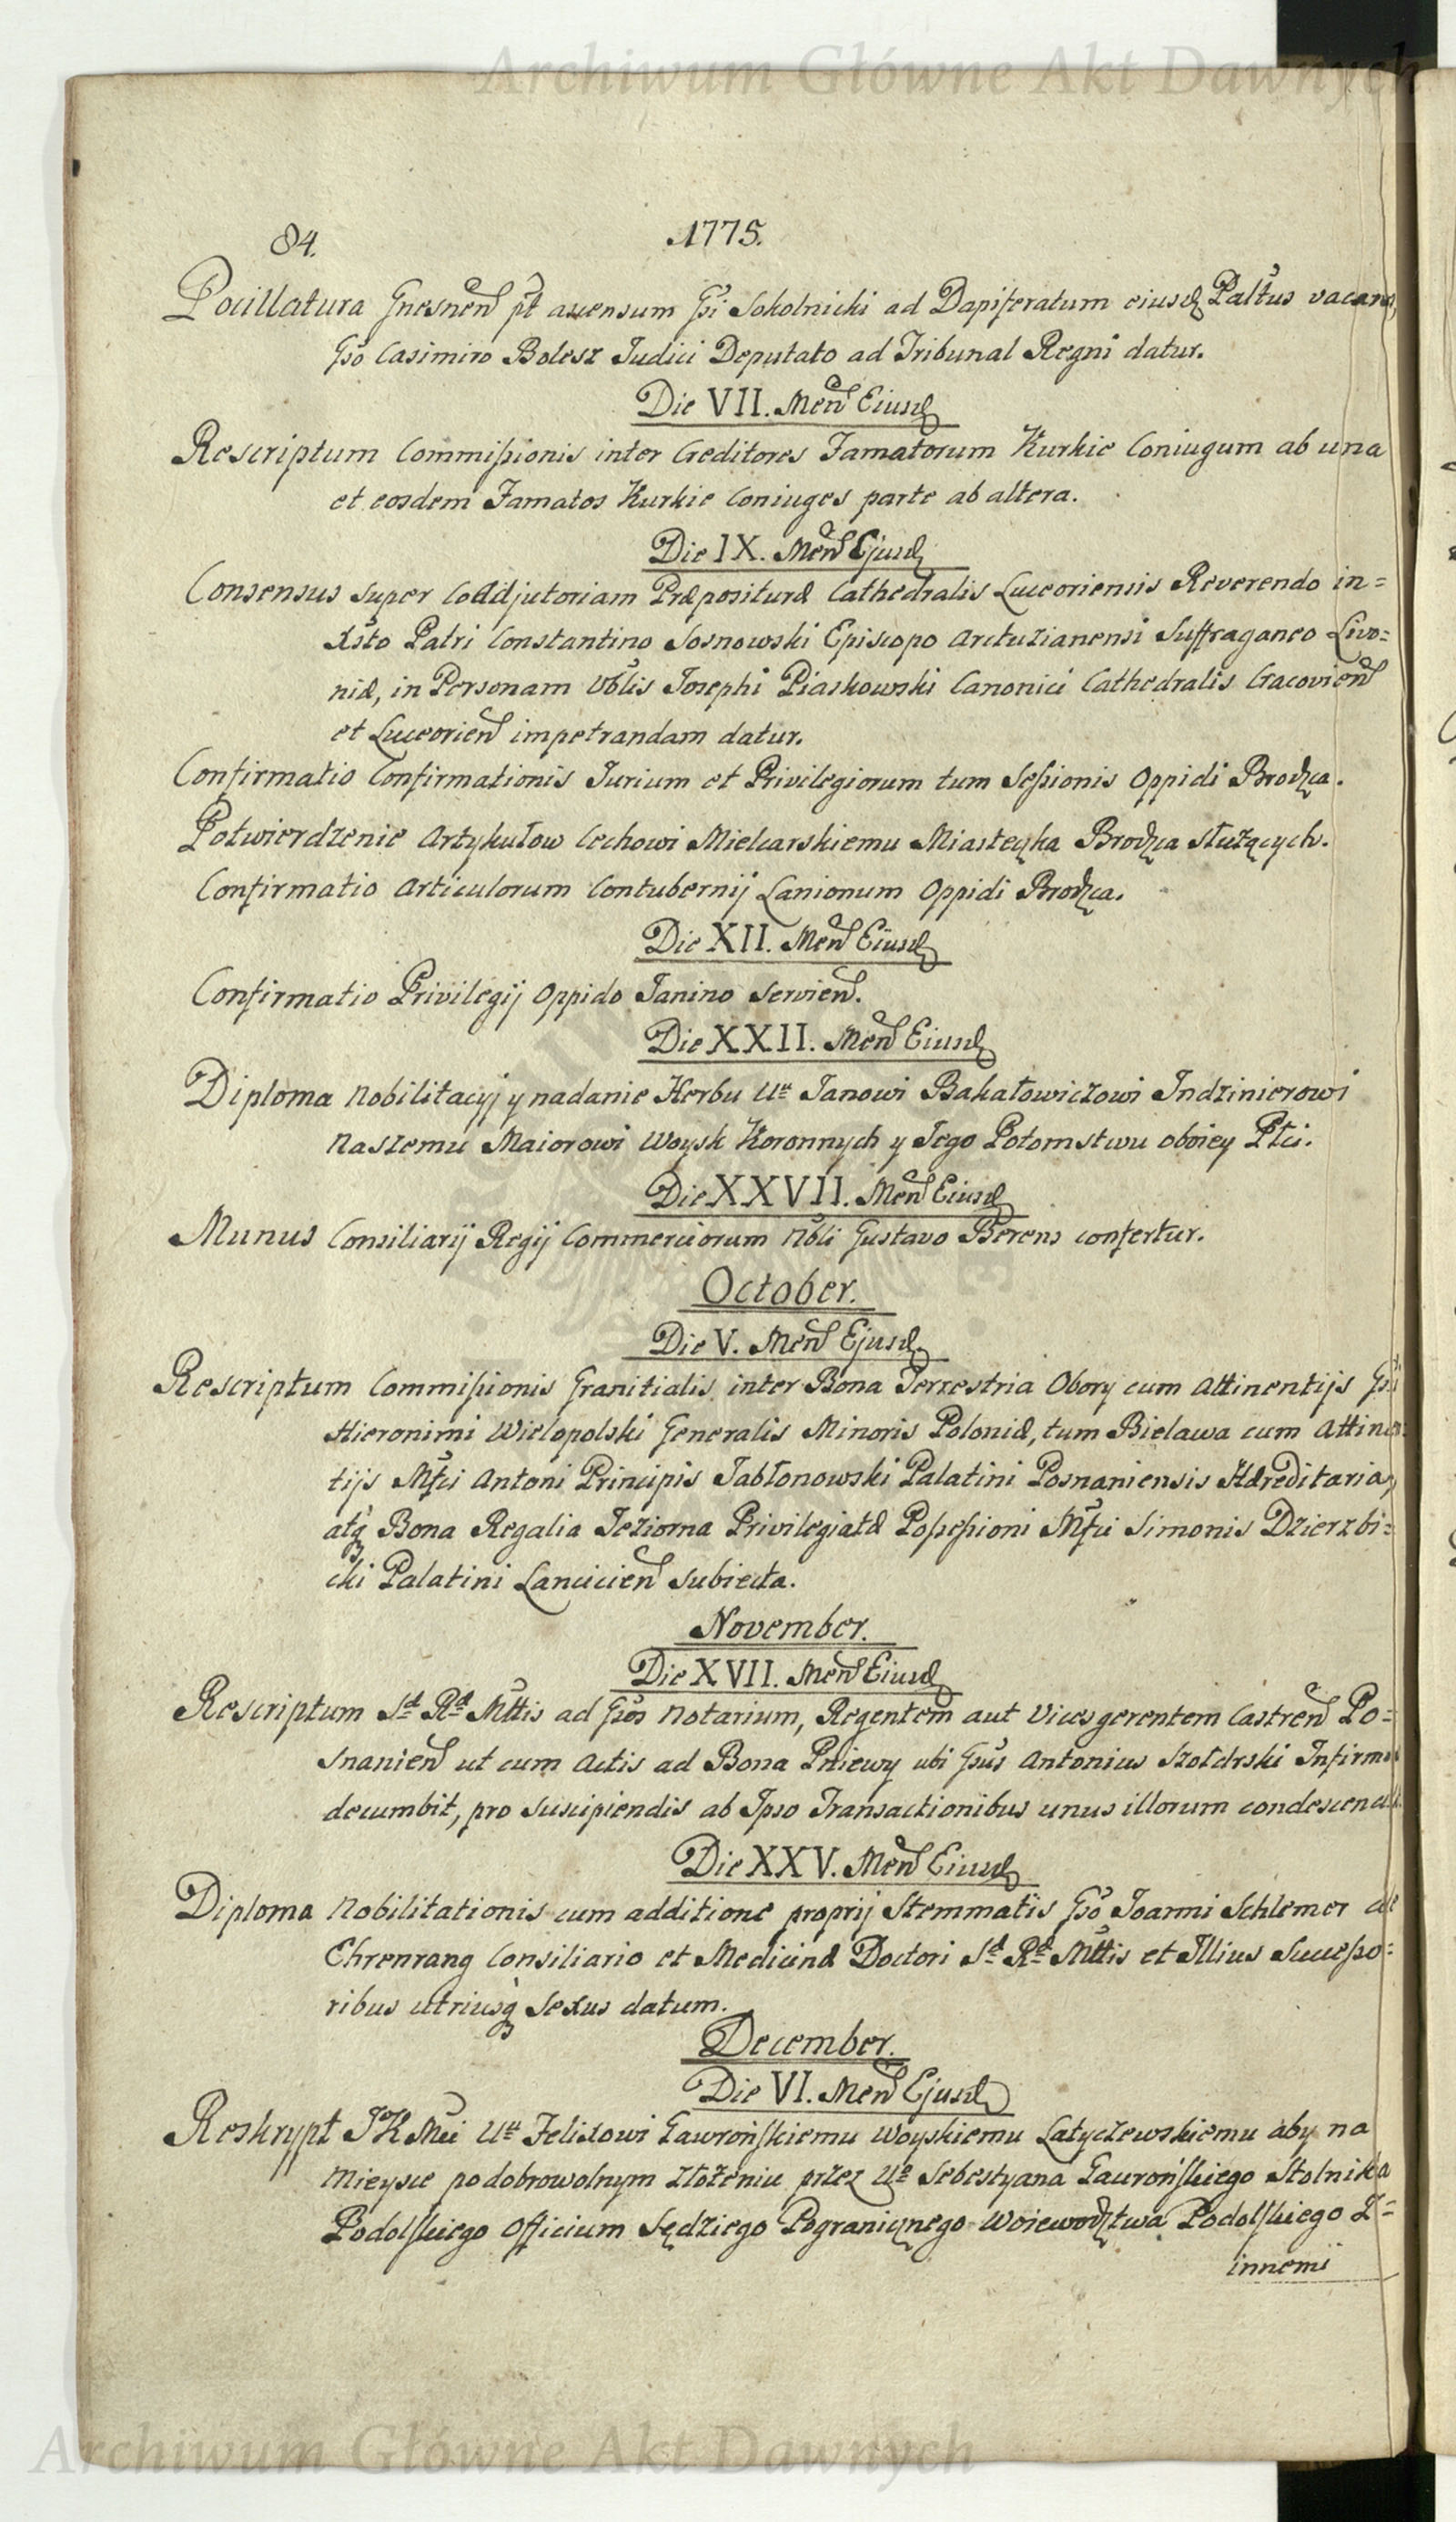 Archiwum Główne Akt Dawnych
84. 1775.
Pocillatura Gnesnen pt ascensum Gsi Sokolnicki ad Dapiferatum eiusd Paltus vacans,
Gso Casimiro Bolesz Judici Deputato ad Tribunal Regni datur.
Die VII. Men Eiusd
Rescriptum Commissionis inter Creditores Famatorum Kurkie Coniugum ab una
et eosdem Famatos Kurkie Coniuges parte ab altera.
Die IX. Men Ejusd
Consensus super Coadjutoriam Præposituræ Cathedralis Luceoriensis Reverendo in=
Xsto Patri Constantino Sosnowski Episcopo Arctuzianensi Suffraganeo Livo=
niæ, in Personam Vblis Josephi Piaskowski Canonici Cathedralis Cracovien
et Luceorien impetrandam datur.
Confirmatio Confirmationis Jurium et Privilegiorum tum Sessionis Oppidi Brodzca.
Potwierdzenie Artykułow Cechowi Mielcarskiemu Miasteczka Brodzca służących.
Confirmatio Articulorum Contubernij Lanionum Oppidi Brodzca.
Die XII. Men Eiusd
Confirmatio Privilegij Oppido Janino Servien.
Die XXII. Men Eiusd
Diploma Nobilitacyi y nadanie Herbu Ur Janowi Bakałowiczowi Indzinierowi
Naszemu Maiorowi Woysk Koronnych y Jego Potomstwu oboiey Płci.
Die XXVII. Men Eiusd
Munus Consiliarij Regij Commerciorum Nbli Gustavo Berens confertur.
October.
Die V. Men Ejusd
Rescriptum Commissionis Granitialis inter Bona Terrestria Obory cum Attinentijs Gsi
Hieronimi Wielopolski Generalis Minoris Poloniæ, tum Bielawa cum Attinen=
tijs Mfci Antoni Principis Jabłonowski Palatini Posnaniensis Hæreditaria,
atq Bona Regalia Jeziorna Privilegiatæ Possessioni Mfci Simonis Dzierzbi=
cki Palatini Lancicien subiecta.
November.
Die XVII. Men Eiusd
Rescriptum Sæ Ræ Mttis ad Gsos Notarium, Regentem aut Vicesgerentem Castren Po=
snanien ut cum Actis ad Bona Pniewy ubi Gsus Antonius Szołdrski Infirmus
decumbit, pro suscipiendis ab Ipso Transactionibus unus illorum condescendat.
Die XXV. Men Eiusd
Diploma Nobilitationis cum additione proprij Stemmatis Gso Joanni Schlemer de
Ehrenrang Consiliario et Medicinæ Doctori Sæ Ræ Mttis et Illius Successo=
ribus utriusq Sexus datum.
December.
Die VI. Men Ejusd
Reskrypt JKMci Ur Felixowi Gawrońskiemu Woyskiemu Latyczewskiemu aby na
Mieysce po dobrowolnym złożeniu przez Uo Sebestyana Gawrońskiego Stolnika
Podolskiego Officium Sędziego Pogranicznego Woiewodztwa Podolskiego z=
innemi
Archiwum Główne Akt Dawnych